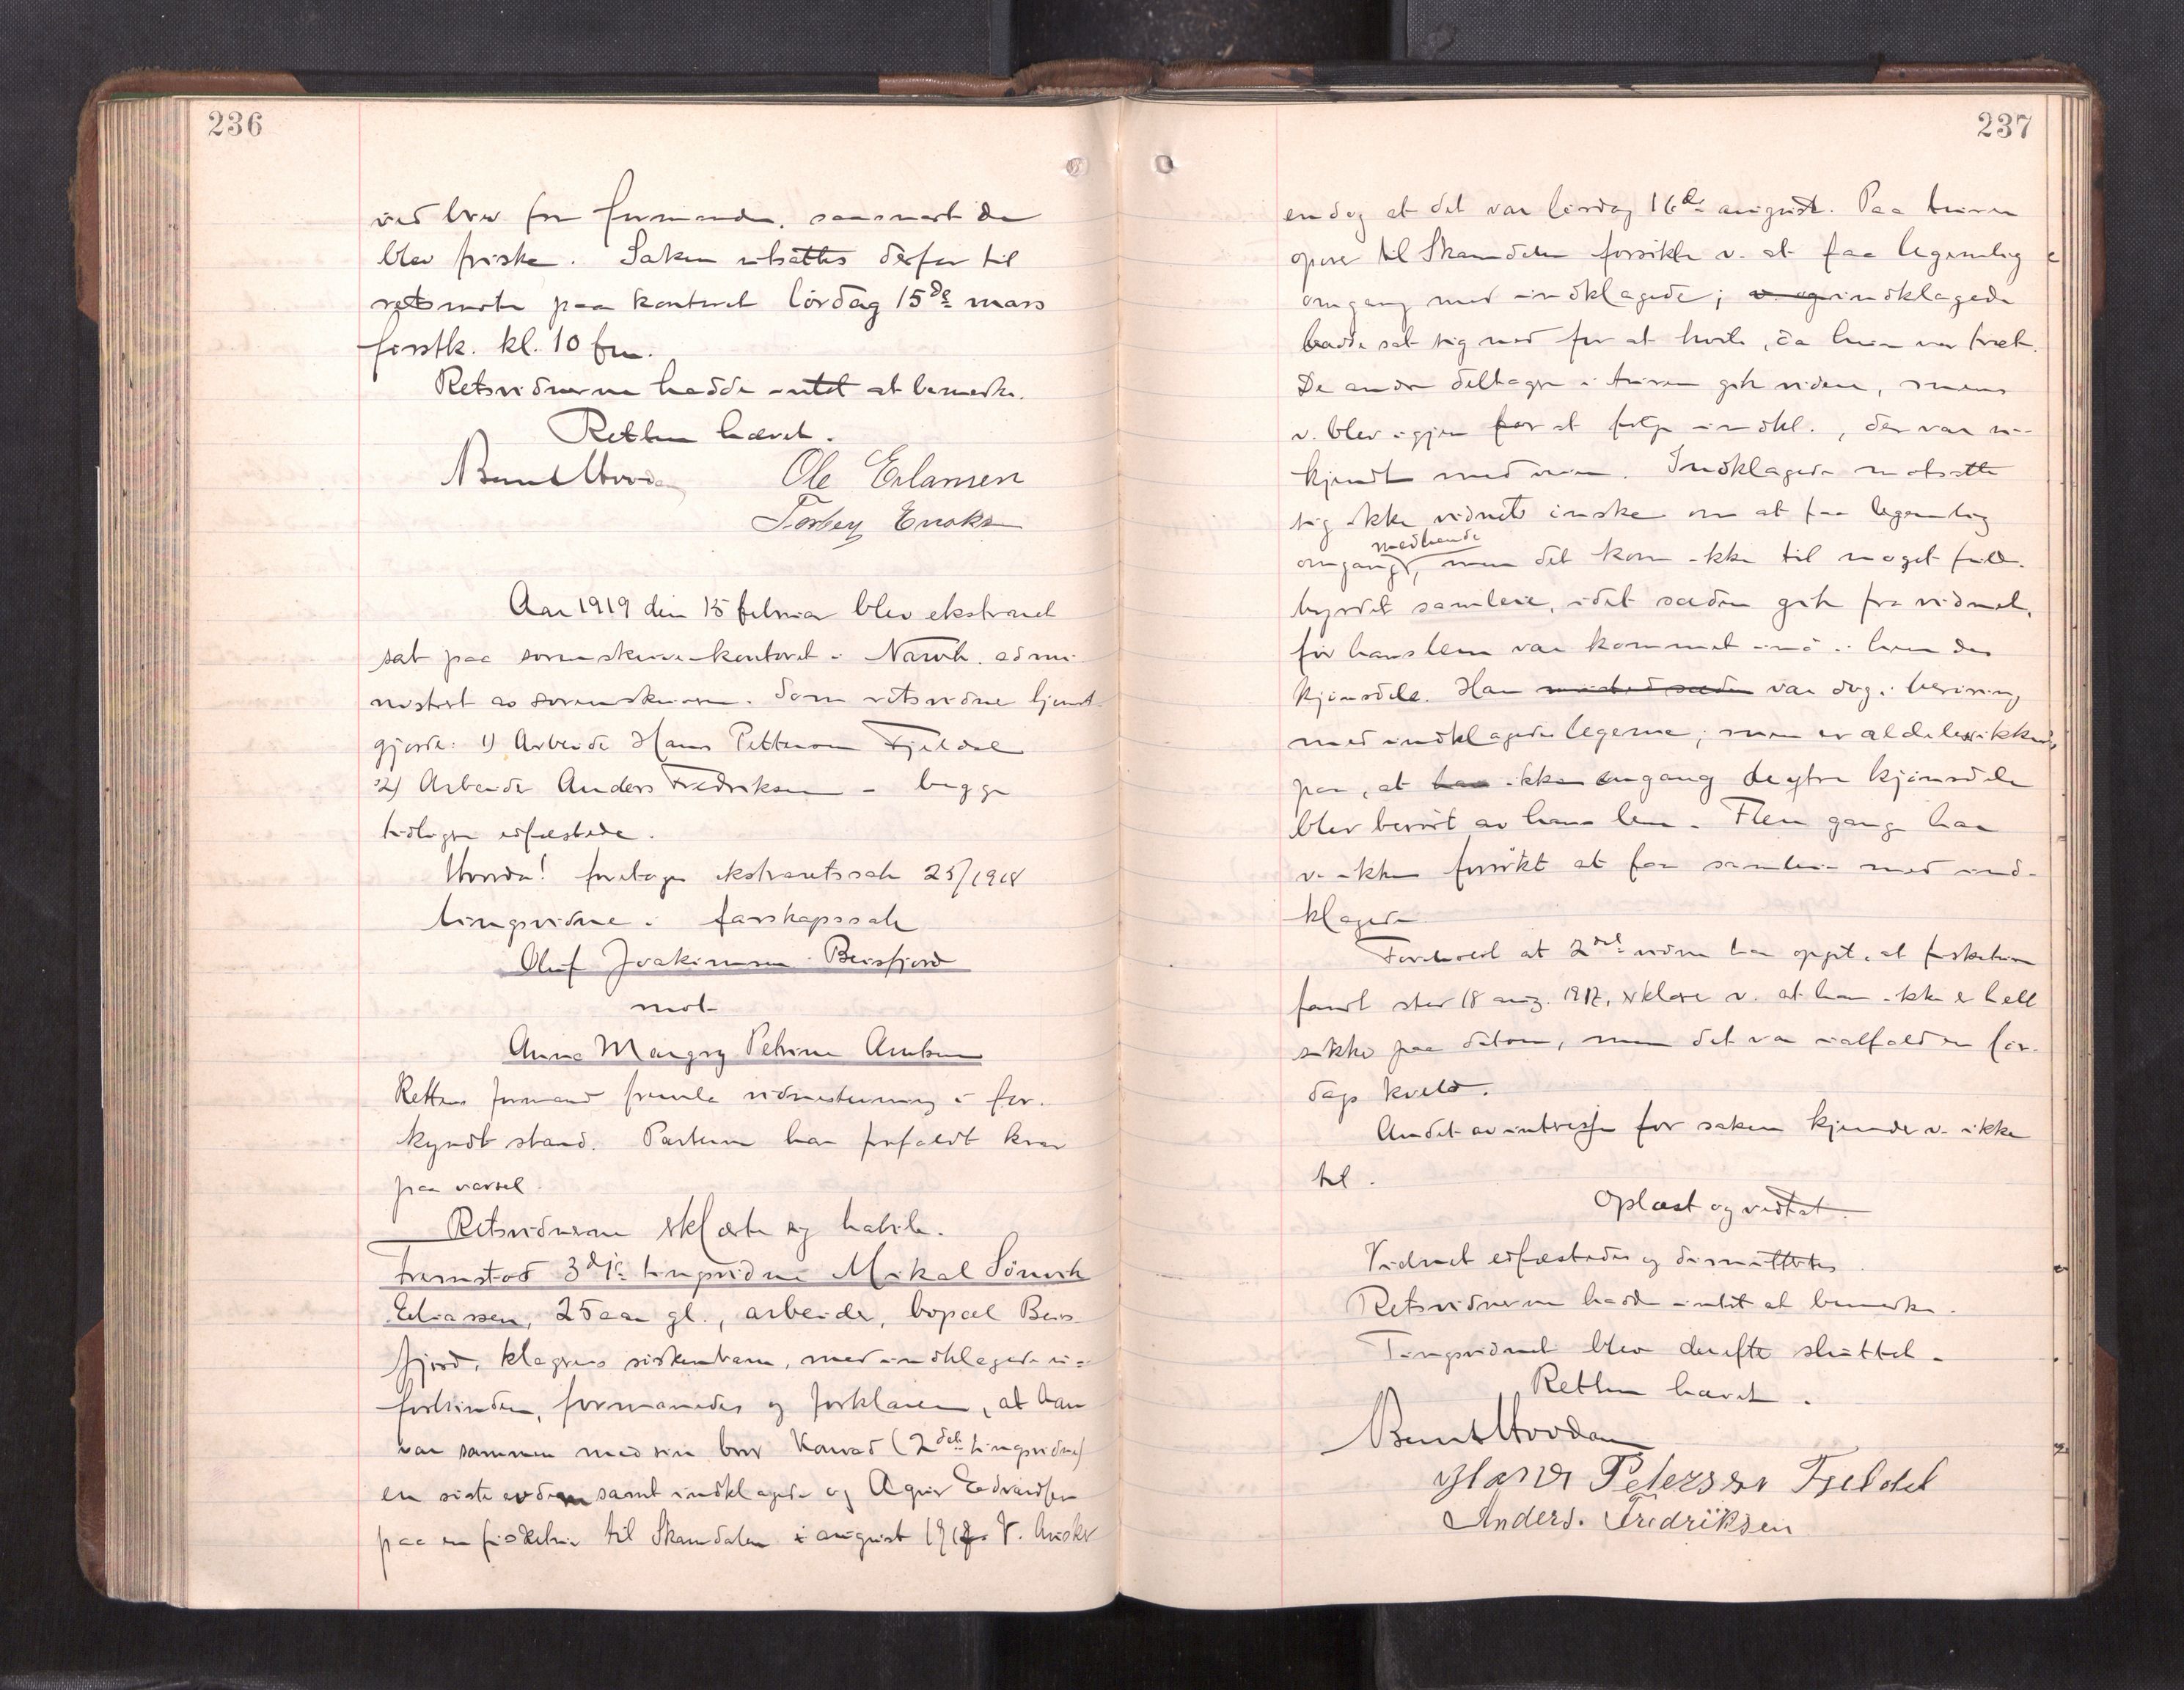 236
ved brev fra formanden, saasnart de
blev friske. Saken utsattes derfor til
retsmøte paa kontoret lördag 15de mars
förstk. kl. 10 fm.
Retsvidnerne hadde intet at bemerke.
Retten hævet.
Ole Erlansen
Aar 1919 den 15 februar blev ekstraret
sat paa sorenskriverkontoret i Narvik admi-
nistrert av sorenskriveren. Som retsvidne tjenst-
gjorde: 1) Arbeider Hans Petterson Fjeldal
2) Arbeider Anders Fredriksen - begge
tidligere edfæstede.
Hvorda! foretages ekstraretssak 25/1918
tingsvidne i farskapssak
Oluf Joakimsen Beisfjord
mot
Anna Margrg Petrine Arntsen
Rettens formand fremla vidnestevning i for-
kyndt stand. Parterne har forfaldt krav
paa varsel.
Retsvidnerne erklærte sig habile.
Fremstod 3dje tingsvidne Mikal Sörvik
Eliassen, 25 aar gl., arbeider, bopæl Beis-
fjord, klagerens söskenbarn, med indklagede u-
forbunden, formanedes og forklarer, at han
var sammen med sin bror Konrad (2det tingsvidne)
en söster av dem samt indklagede og Agnes Edvardsen
paa en fisketur til Skamdalen i august 1917. V. husker
237
endog at det var lördag 16de august. Paa turen
opover til Skamdalen forsökte v. at faa legemlig
omgang med indklagede; v. og indklagede
hadde sat sig ned for at hvile, da hun var træt.
De andre deltagere i turen gik videre, mens
v. blev igjen for at følge indkl., der var u-
kjendt med veien. Indklagede motsatte
sig ikke vidnets önske om at faa legemlig
omgang med hende, men det kom ikke til noget fuld-
byrdet samleie, idet sæden gik fra vidnet,
før hans lem var kommet ind i hendes
kjönsdele. Han mistet sæden var dog i beröring
med indklagedes legeme; men er aldeles sikker
paa, at han ikke engang de ytre kjönsdele
blev berört av hans lem. Flere gange har
v. ikke forsökt at faa samleie med ind-
klagede.
Foreholdt at 2det vidne har oppgit, at fisketuren
fandt sted 18 aug. 1917, erklærer v. at han ikke er helt
sikker paa datoen, men det var ialfald en lör-
dags kveld.
Andet av interesse for saken kjender v. ikke
til.
Oplæst og vedtat.
Vidnet edfæstedes og dimitteres.
Retsvidnerne hadde intet at bemerke.
Tingsvidnet blev derefter sluttet.
Retten hævet.
Hans Peterson Fjeldal
Anders. Fredriksen